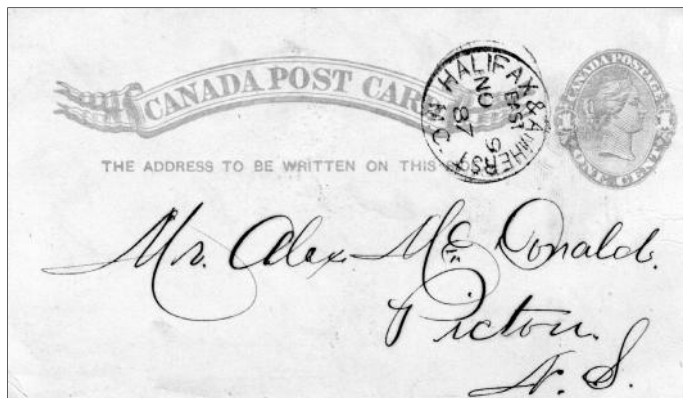 CANADA POST CAR
HALIFAX & AMHERST M.C.
EAST
NO 9
87
CANADA POSTAGE
1 1
ONE CENT
THE ADDRESS TO BE WRITTEN ON THIS
Mr. Alex McDonald.
Pictou.
N. S.